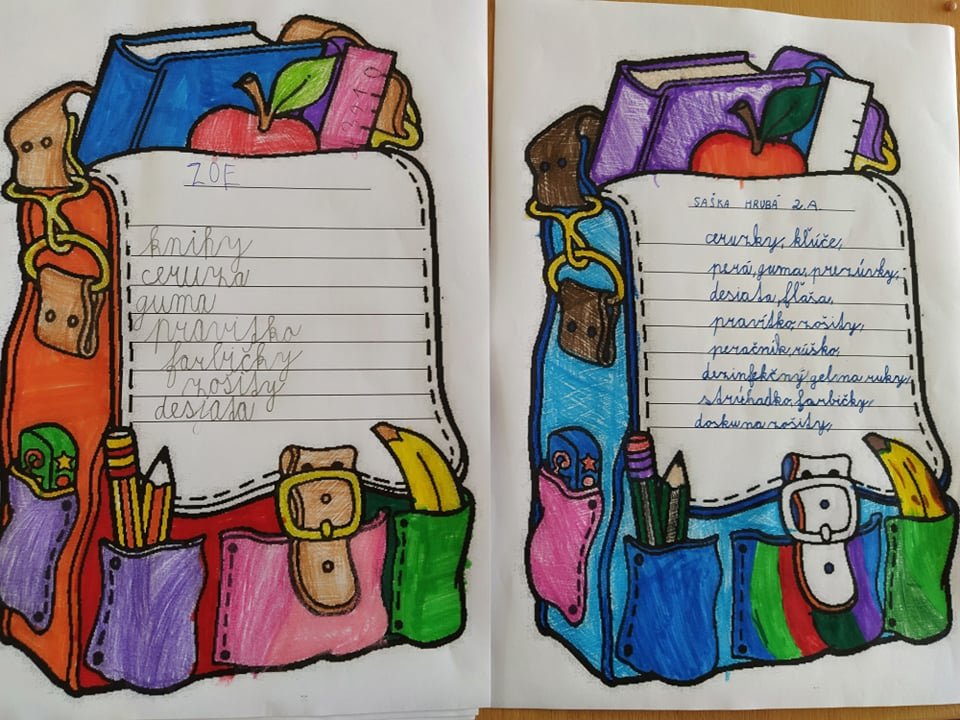 ZOE
knihy
ceruza
guma
pravítko
farbičky
zošity
desiata
SAŠKA HRUBÁ 2.A.
ceruzky, kľúče,
perá, guma, prezúvky,
desiata, fľaša,
pravítko, zošity,
peračník, rúško,
dezinfekčný gel na ruky,
strúhadko, farbičky,
dosku na zošity,